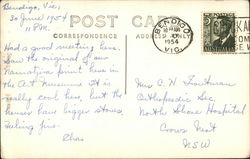 Bendigo, Vic,
30 June 1954
11 P.M.
POST CARD
CORRESPONDENCE
ADDRESS
BENDIGO
1954
VIC
Had a good meeting here.
Saw the original of our
print here in
the Art Museum. It is
really cool here, but the
houses have bigger stoves,
Chas
Mrs C. H.
Orthopaedic Sec.
North Shore Hospital
Crows Nest
NSW